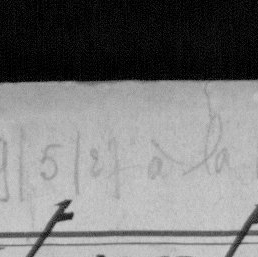 5 | 2} à la